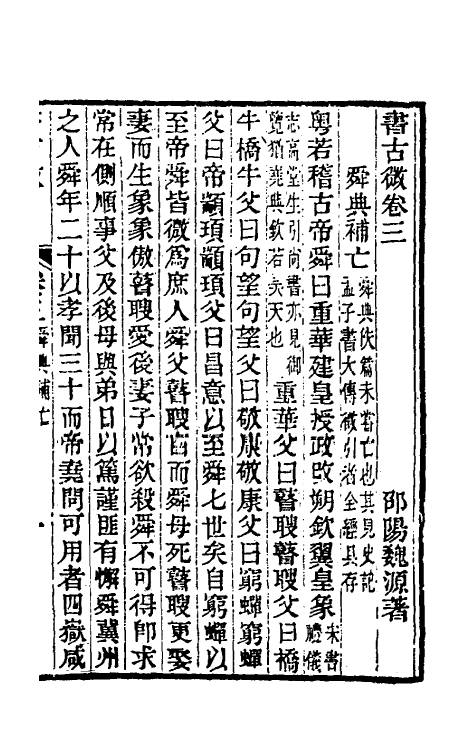 書古微卷三
邵陽魏源著
舜典補亡
舜典佚篇未嘗亡也其見史記
孟子書大傳徵引者全經具存
粵若稽古帝舜曰重華建皇授政改朔欽翼皇象
宋書禮儀
志高堂生引尚書亦見御
覽猶堯典欽若昊天也
重華父曰瞽瞍瞽瞍父曰橋
牛橋牛父曰句望句望父曰敬康敬康父曰窮蟬窮蟬
父曰帝顓頊顓頊父曰昌意以至舜七世矣自窮蟬以
至帝舜皆微爲庶人舜父瞽瞍盲而舜母死瞽瞍更娶
妻而生象象傲瞽瞍愛後妻子常欲殺舜不可得卽求
常在側順事父及後母與弟日以篤謹匪有懈舜冀州
之人舜年二十以孝聞三十而帝堯問可用者四嶽咸
舜典補亡
一